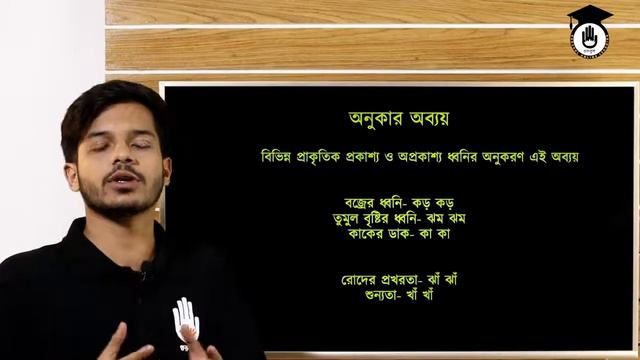 অনুকার অব্যয়
বিভিন্ন প্রাকৃতিক প্রকাশ্য ও অপ্রকাশ্য ধ্বনির অনুকরণ এই অব্যয়
বজ্রের ধ্বনি- কড় কড়
তুমুল বৃষ্টির ধ্বনি- ঝম ঝম
কাকের ডাক- কা কা
রোদের প্রখরতা- ঝাঁ ঝাঁ
শুন্যতা- খাঁ খাঁ